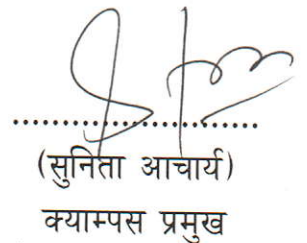 (सुनिता आचार्य)
क्याम्पस प्रमुख